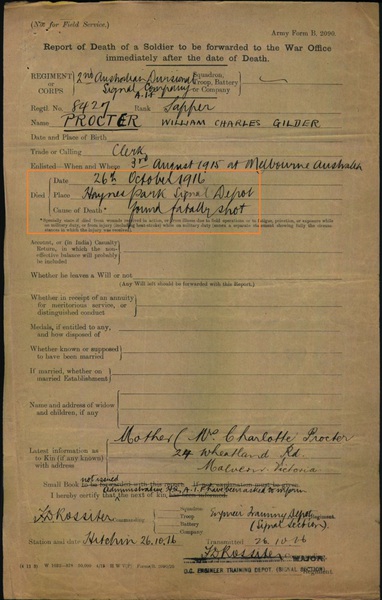 (Not for Field Service.)
Army Form B. 2090.
Report of Death of a Soldier to be forwarded to the War Office
immediately after the date of Death.
REGIMENT or CORPS } 2nd Australian Divisional Signal Company A.I.F. { Squadron, Troop, Battery or Company
Regtl. No. 8427 Rank Sapper
Name PROCTER WILLIAM CHARLES GILDER
Date and Place of Birth
Trade or Calling Clerk
Enlisted—When and Where 3rd August 1915 at Melbourne Australia
Died { Date 26th October 1916
Place Haynes Park Signal Depot
Cause of Death* found fatally shot
Account, or (in India) Casualty Return, in which the non-effective balance will probably be included
Whether he leaves a Will or not
(Any Will not should be forwarded with this Report.)
Whether in receipt of an annuity for meritorious service, or distinguished conduct
Medals, if entitled to any, and how disposed of
Whether known or supposed to have been married
If married, whether on married Establishment
Name and address of widow and children, if any
Latest information as to Kin (if any known) with address } Mother (Mrs Charlotte Procter
24 Wheatland Rd.
Malvern Victoria
not issued
Small Book to be forwarded with this report.
Administrative Hdq. A.I.F. have been asked to inform
I hereby certify that the next of kin
F D Rossiter Commanding { Squadron Troop Battery Company } Engineer Training Depot (Signal Section) Regiment
Station and date Hitchin 26.10.16 Transmitted 26.10.16
F D Rossiter MAJOR
O.C. ENGINEER TRAINING DEPOT, (SIGNAL SECTION)